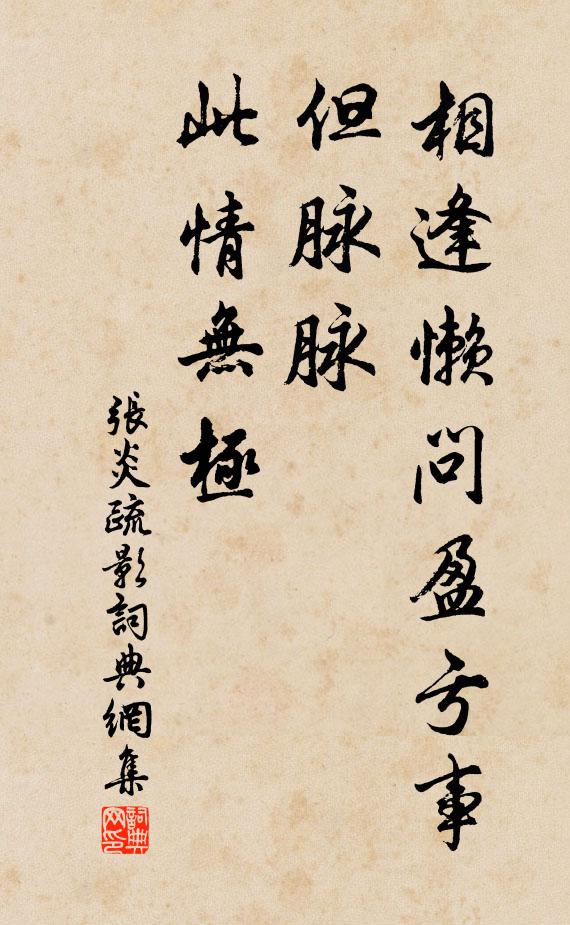 相逢懒问盈亏事
但脉脉
此情無極
張炎疏影詞典網集
詞典
网印